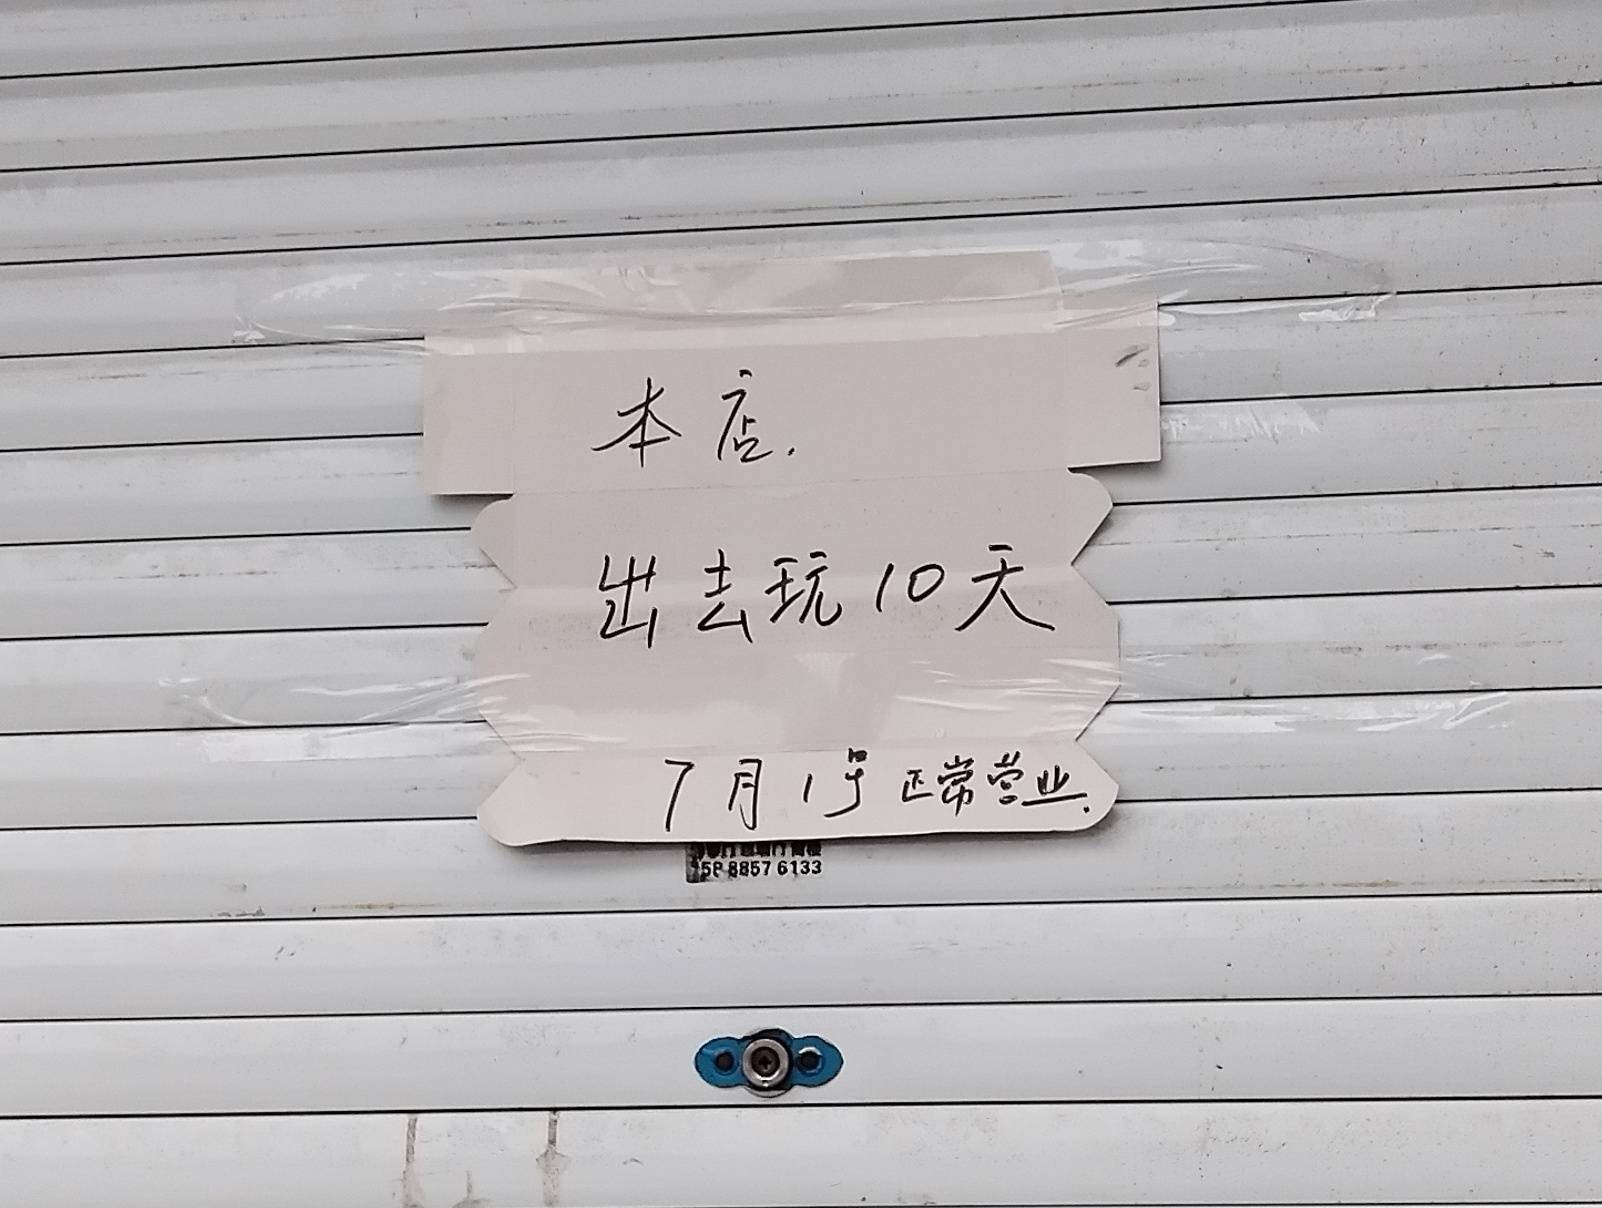 本店.
出去玩10天
7月1号正常营业.
8857 6133